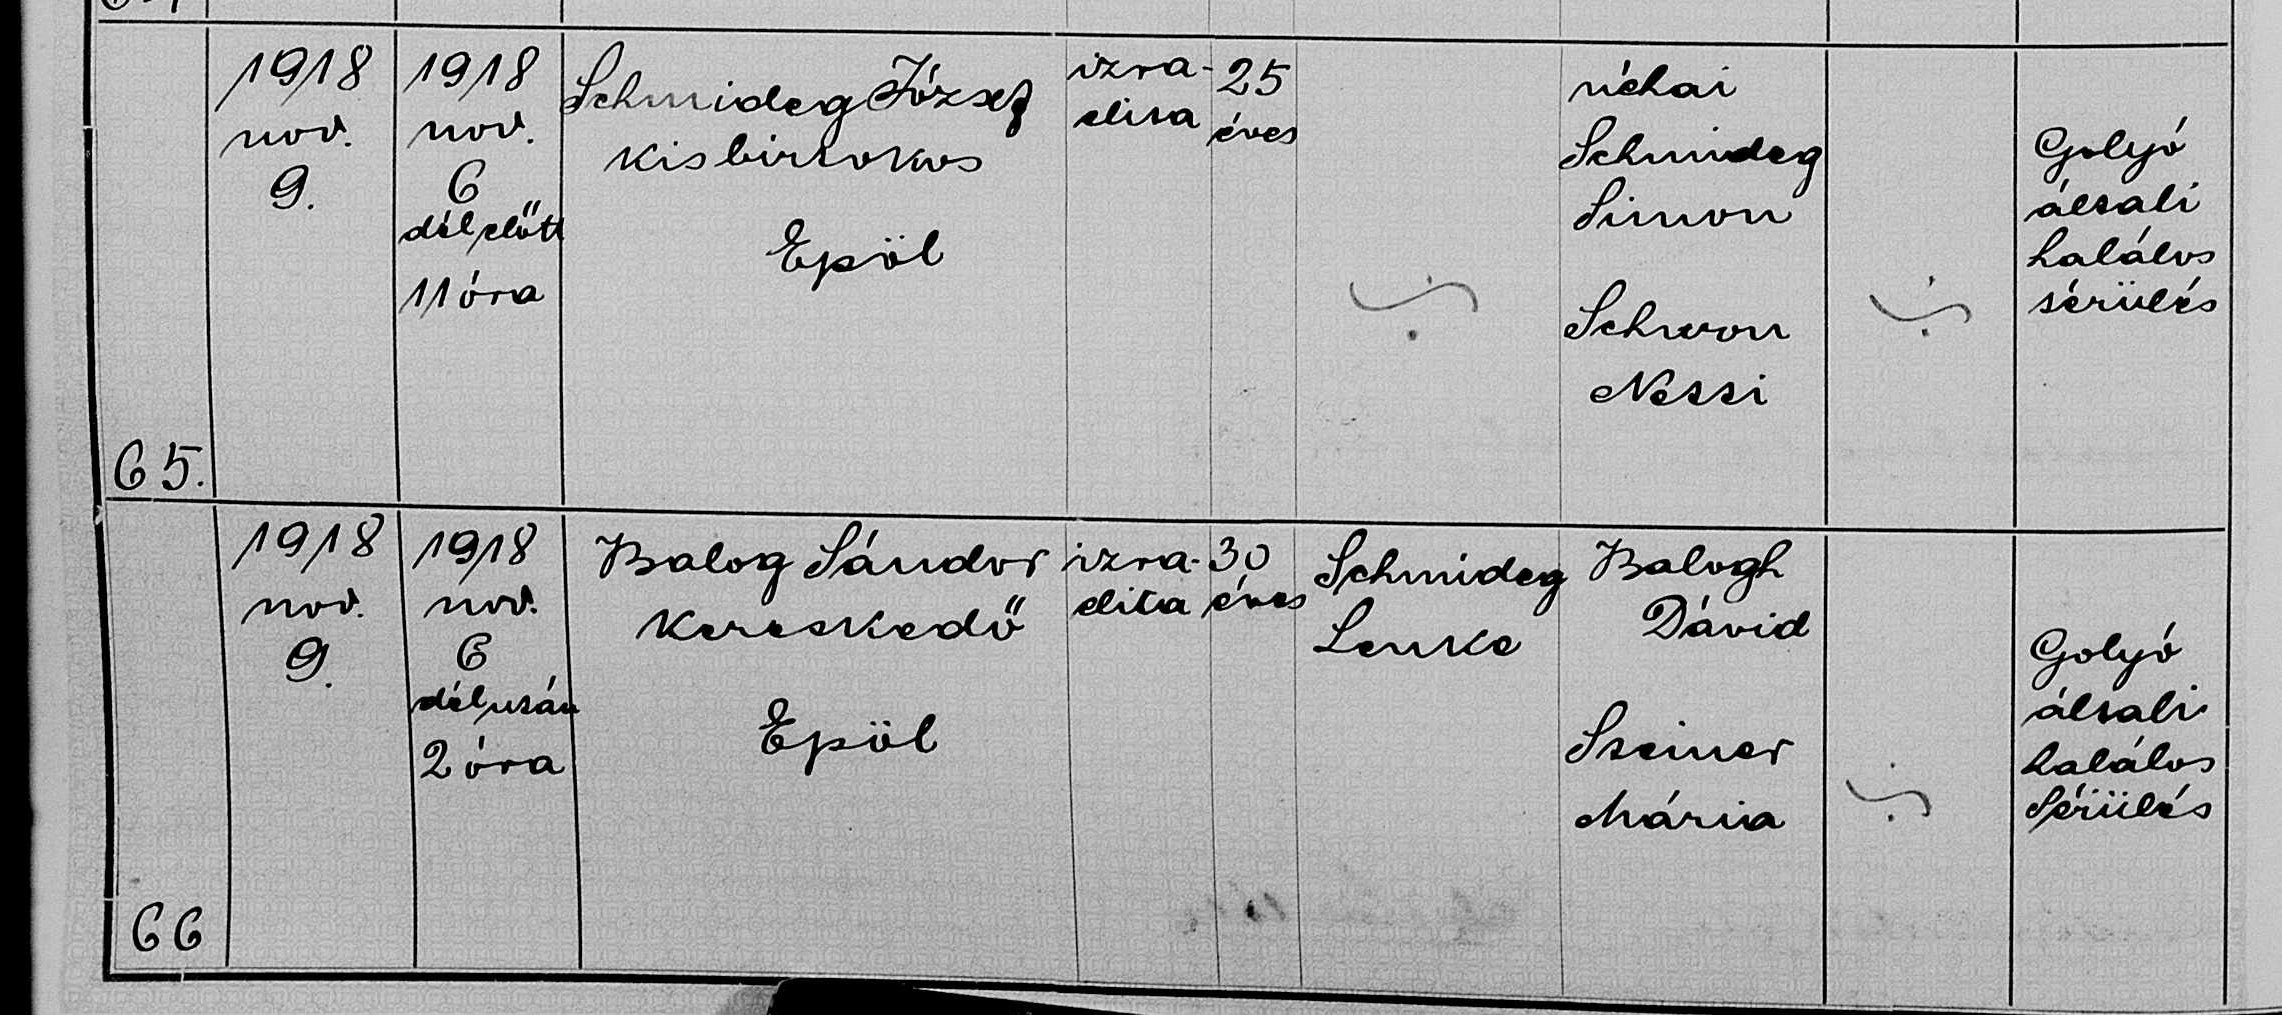 1918
nov.
9.
1918
nov.
6
délelőtt
11 óra
Schmideg József
kisbirtokos
Epöl
izra-
elita
25
éves
néhai
Schmideg
Simon
Schvon
Neszi
Golyó
általi
halálos
sérülés
65.
1918
nov.
9.
1918
nov.
6
délután
2 óra
Balog Sándor
kereskedő
Epöl
izra-
elita
30
éves
Schmideg
Lenke
Balogh
Dávid
Steiner
Mária
Golyó
általi
halálos
sérülés
66